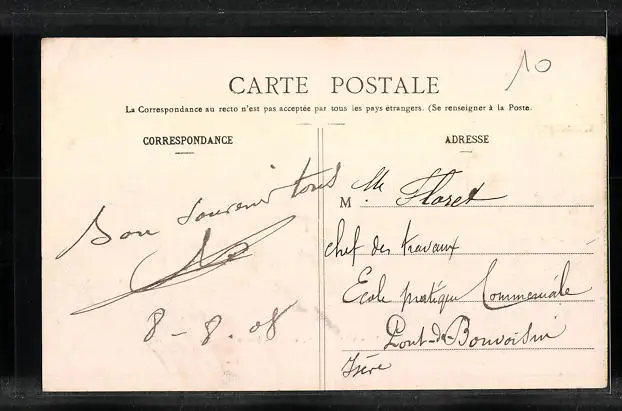 10
CARTE POSTALE
La Correspondance au recto n'est pas acceptée par tous les pays étrangers. (Se renseigner à la Poste.
CORRESPONDANCE
Bon souvenir tous
8-8.08
ADRESSE
M. Mr Floret
chef des travaux
Ecole pratique Commerciale
Pont-de-Bonvoisin
Isère